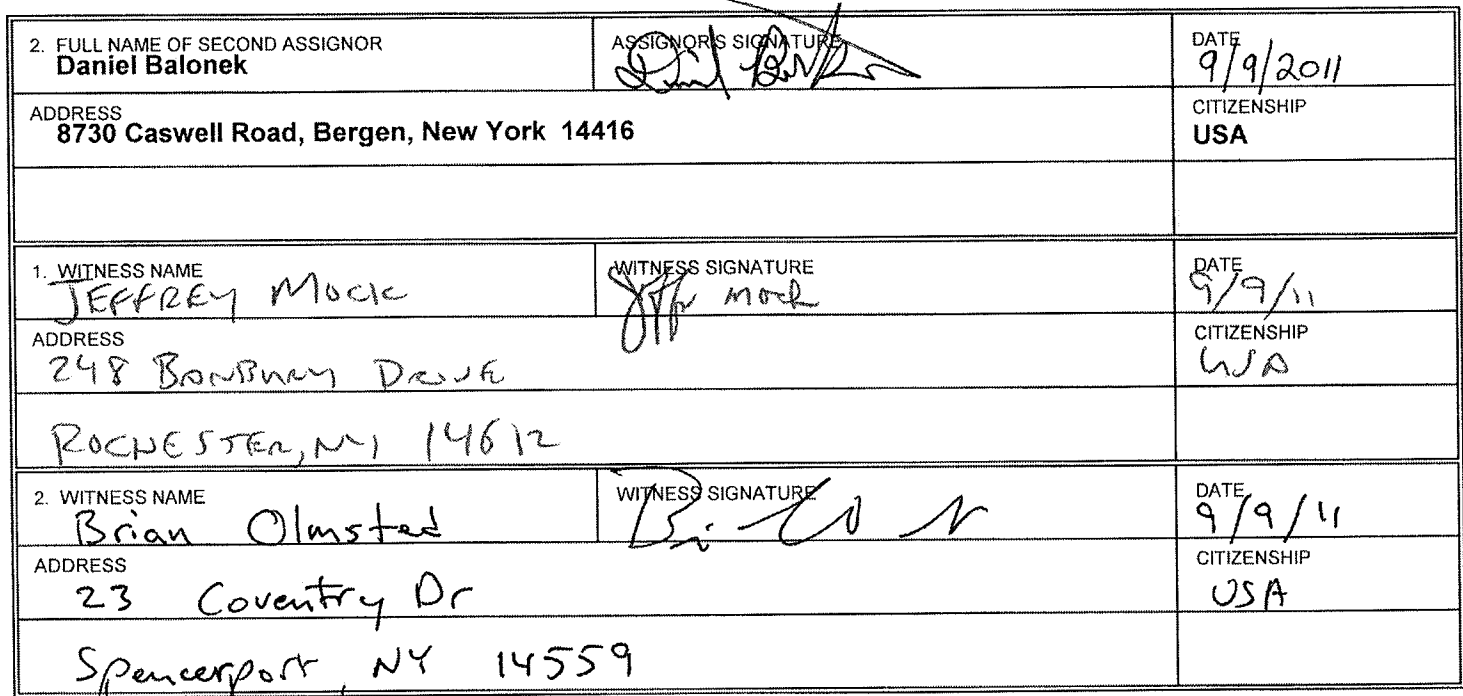 2. FULL NAME OF SECOND ASSIGNOR
Daniel Balonek
ASSIGNOR'S SIGNATURE
DATE
9/9/2011
ADDRESS
8730 Caswell Road, Bergen, New York 14416
CITIZENSHIP
USA
1. WITNESS NAME
JEFFREY MOCK
WITNESS SIGNATURE
DATE
9/9/11
ADDRESS
248 BONBURY DRIVE
CITIZENSHIP
USA
ROCHESTER, NY 14612
2. WITNESS NAME
Brian Olmsted
WITNESS SIGNATURE
DATE
9/9/11
ADDRESS
23 Coventry Dr
CITIZENSHIP
USA
Spencerport, NY 14559